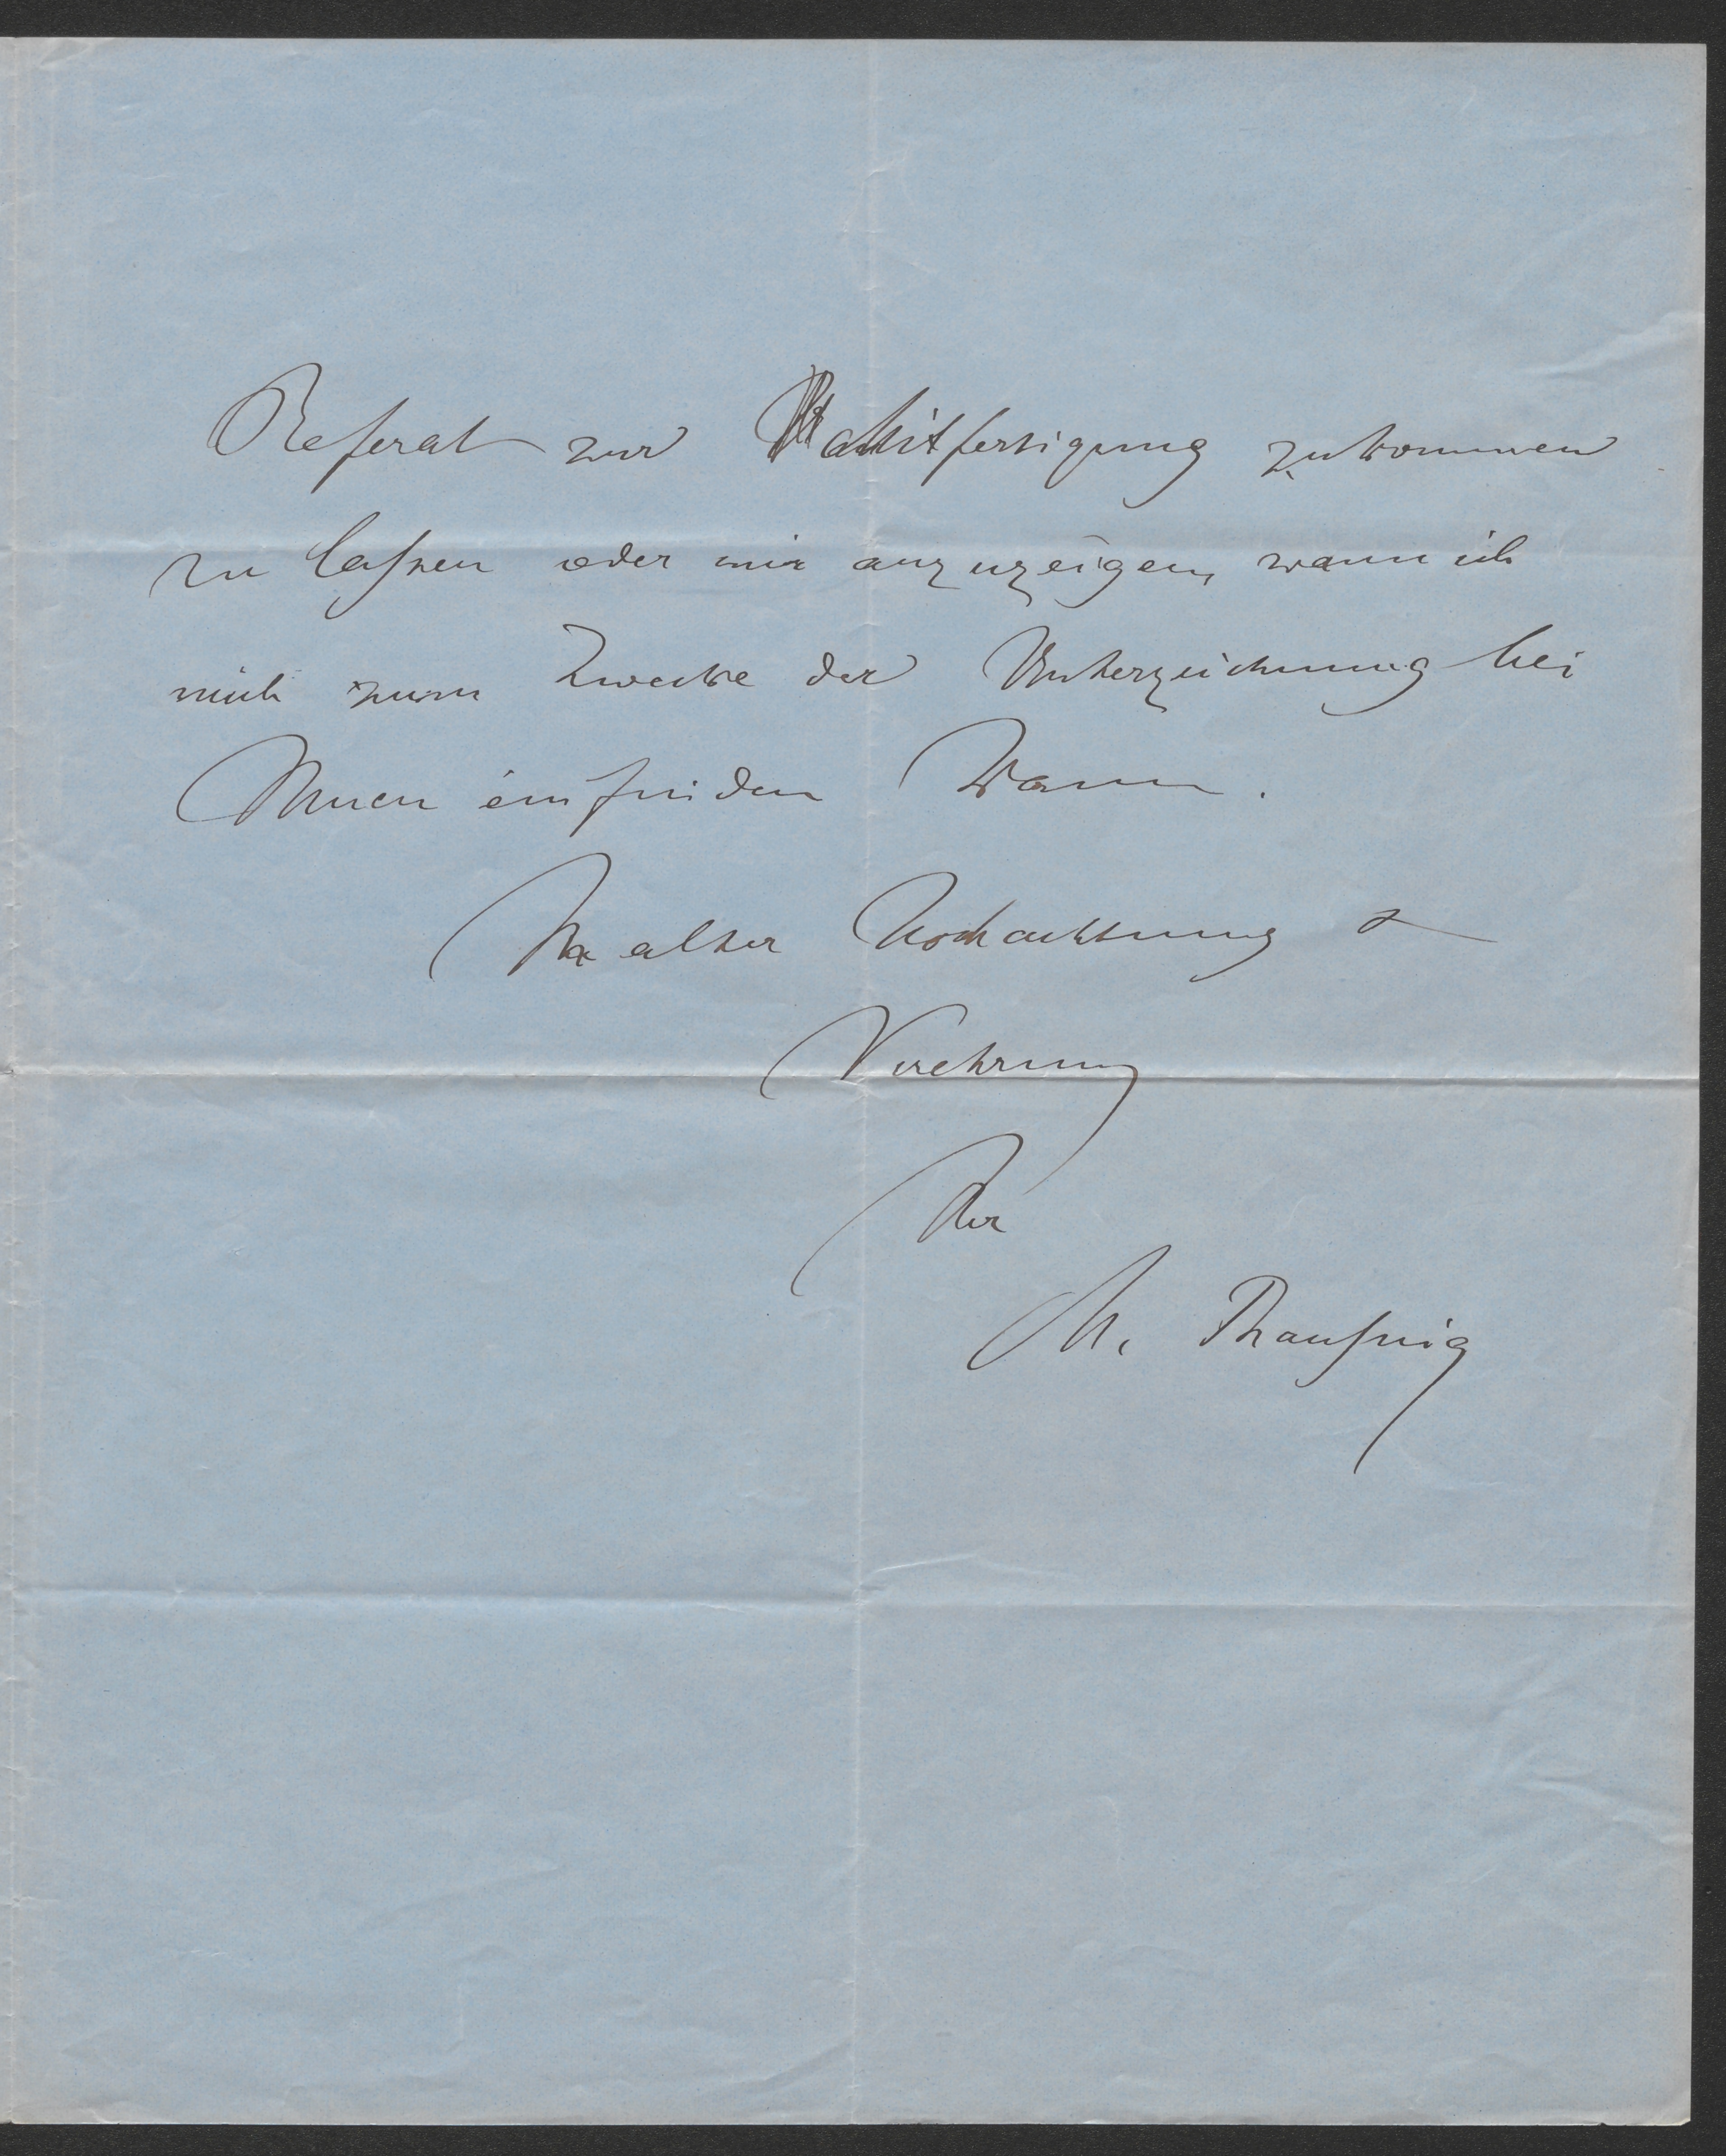 Referat zur Mitfertigung zukommen
zu lassen oder mir anzuzeigen, wann ich
mich zum Zwecke der Unterzeichnung bei
Ihnen einfinden kann.
In alter Hochachtung &
Verehrung
Ihr
M. Thausing